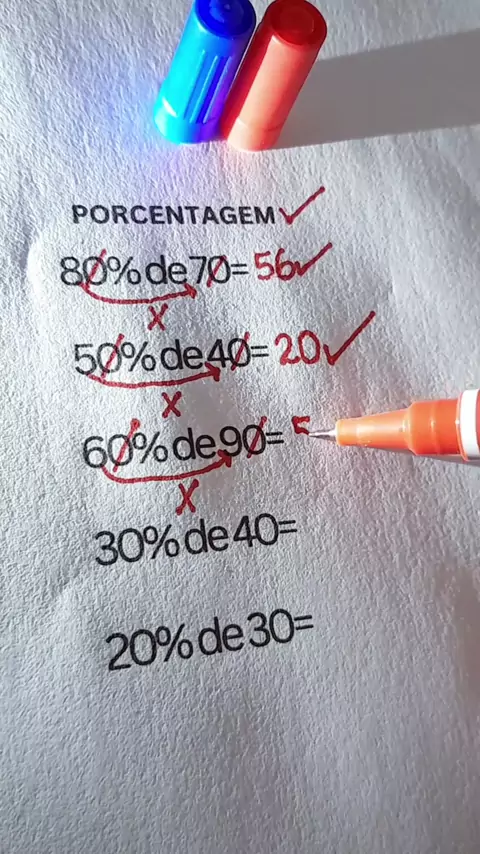 PORCENTAGEM
80% de 70= 56
X
50% de 40= 20
X
60% de 90= 5
X
30% de 40=
20% de 30=